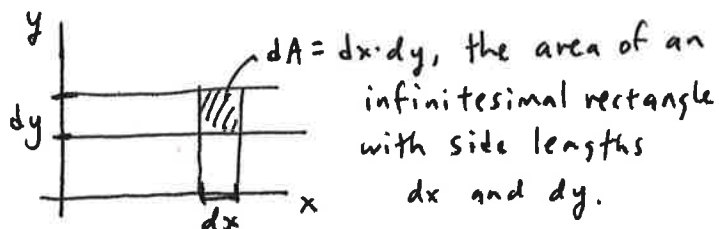 y
dA = dx·dy, the area of an
infinitesimal rectangle
dy
with side lengths
dx and dy.
x
dx